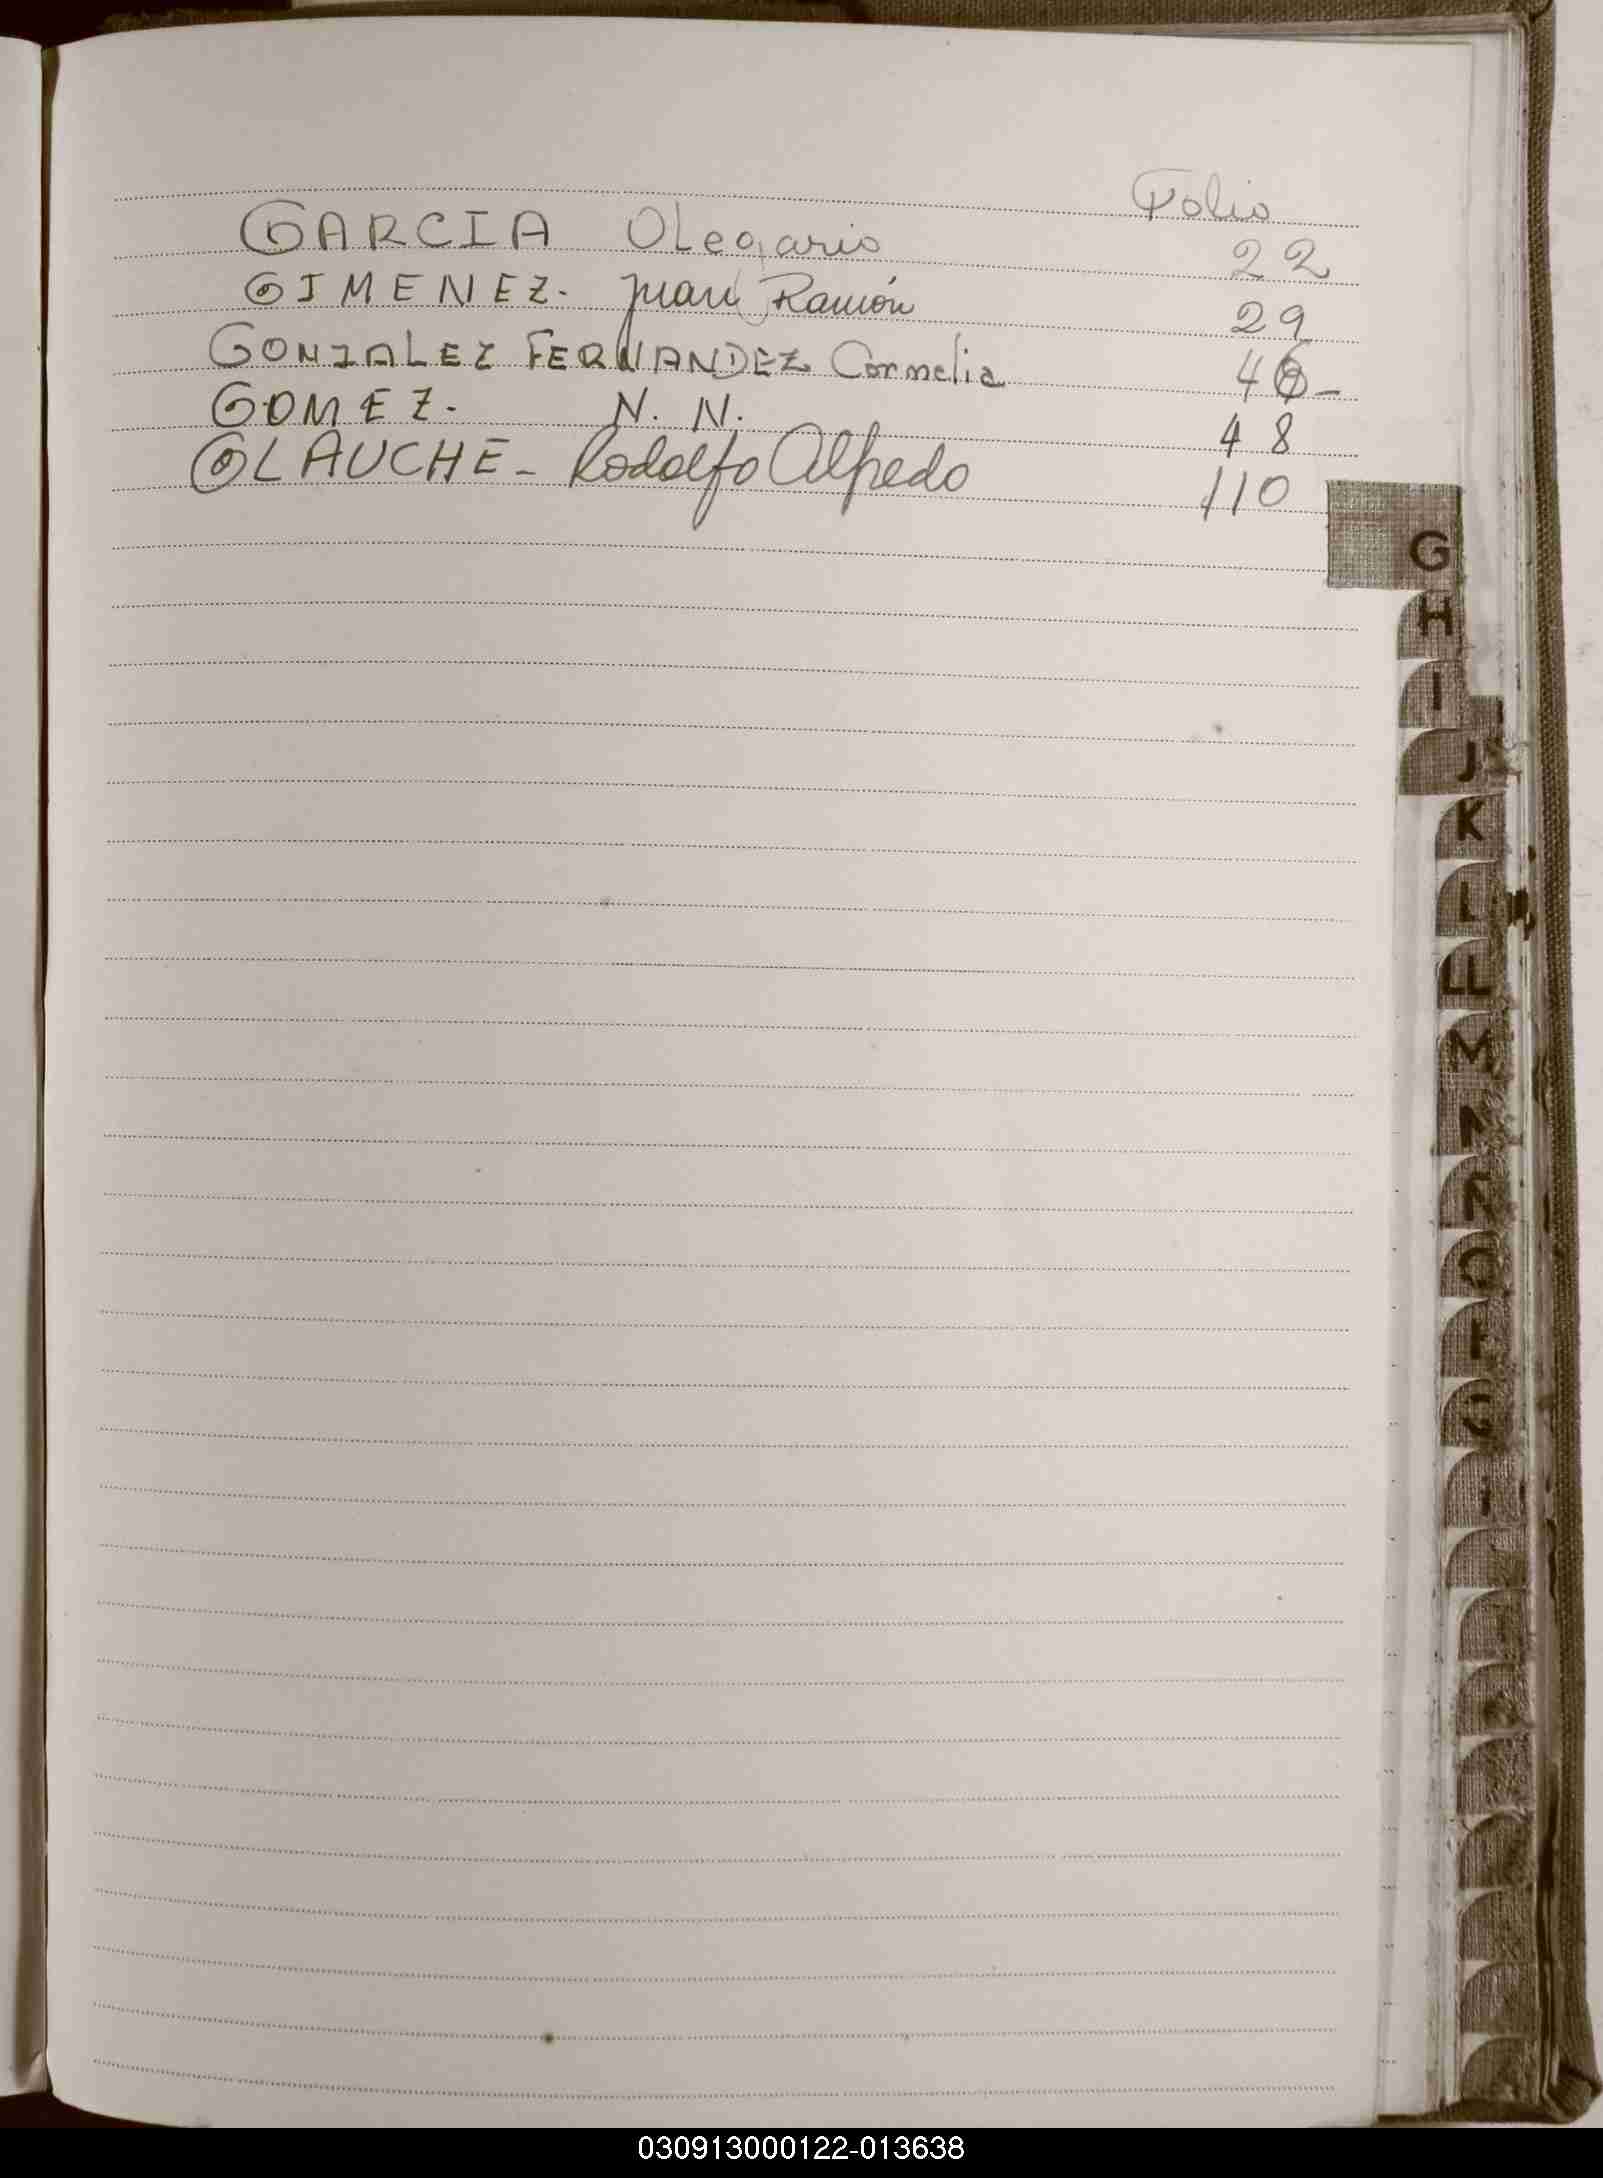 Folio
GARCIA Olegario 22
GIMENEZ. Juan Ramón 29
GONZALEZ FERNANDEZ Cornelia 46-
GOMEZ. N. N. 48
GLAUCHE - Rodolfo Alfredo 110
G
H
I
J
K
L
LL
M
N
Ñ
O
030913000122-013638